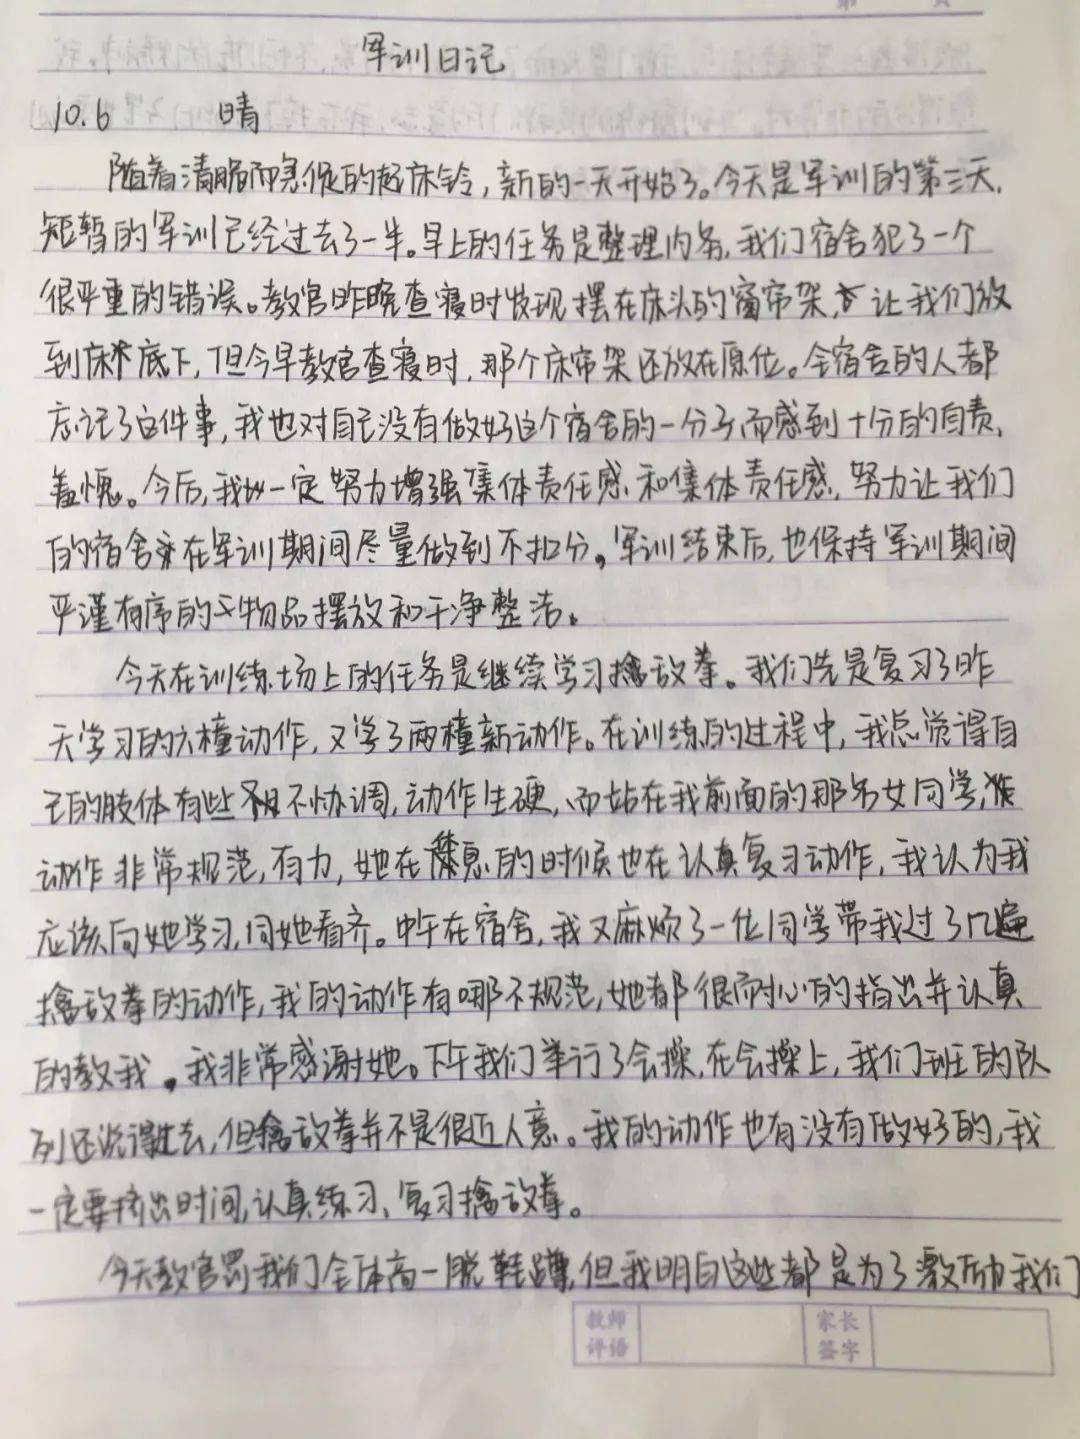 军训日记
10.6 晴
随着清脆而急促的起床铃，新的一天开始了。今天是军训的第三天，
短暂的军训已经过去了一半。早上的任务是整理内务，我们宿舍犯了一个
很严重的错误。教官昨晚查寝时发现摆在床头的窗帘架，让我们放
到床底下，但今早教官查寝时，那个床帘架还放在原位。全宿舍的人都
忘记了这件事，我也对自己没有做好这个宿舍的一分子而感到十分的自责，
羞愧。今后，我一定努力增强集体责任感和集体责任感，努力让我们
的宿舍在军训期间尽量做到不扣分。军训结束后，也保持军训期间
严谨有序的物品摆放和干净整洁。
今天在训练场上的任务是继续学习擒敌拳。我们先是复习了昨
天学习的六种动作，又学了两种新动作。在训练的过程中，我总觉得自
己的肢体有些不协调，动作生硬，而站在我前面的那名女同学，
动作非常规范，有力，她在休息的时候也在认真复习动作，我认为我
应该向她学习，向她看齐。中午在宿舍，我又麻烦了一位同学带我过了几遍
擒敌拳的动作，我的动作有哪不规范，她都很耐心的指出并认真
的教我。我非常感谢她。下午我们举行了会操，在会操上，我们班的队
列还说得过去，但擒敌拳并不是很近人意。我的动作也有没有做好的，我
一定要挤出时间，认真练习、复习擒敌拳。
今天教官罚我们全体高一脱鞋蹲，但我明白这些都是为了激励我们
教师
评语
家长
签字